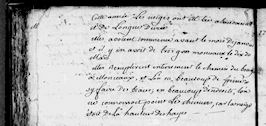 Cette année Les neiges ont été très abondantes
et de Longue durée
elles avoient commencé avant le mois de janvier
et il y en avoit de bien gros monceaux le de
Mars
elles remplirent entierement le chemin du
de Monceaux, et L'on en beaucoup de
y faire des beaucoup d'endroits, L'on
ne connoissoit point les chemins, car la neige
étoit de la hauteur des hayes